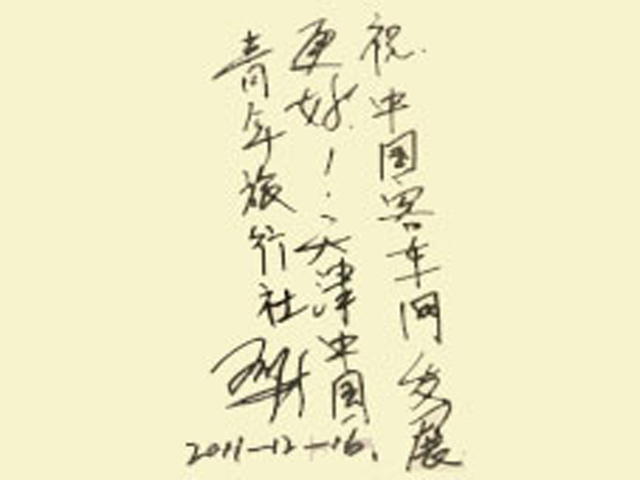 祝中国客车网发展
更好！天津中国
青年旅行社
2011-12-16.